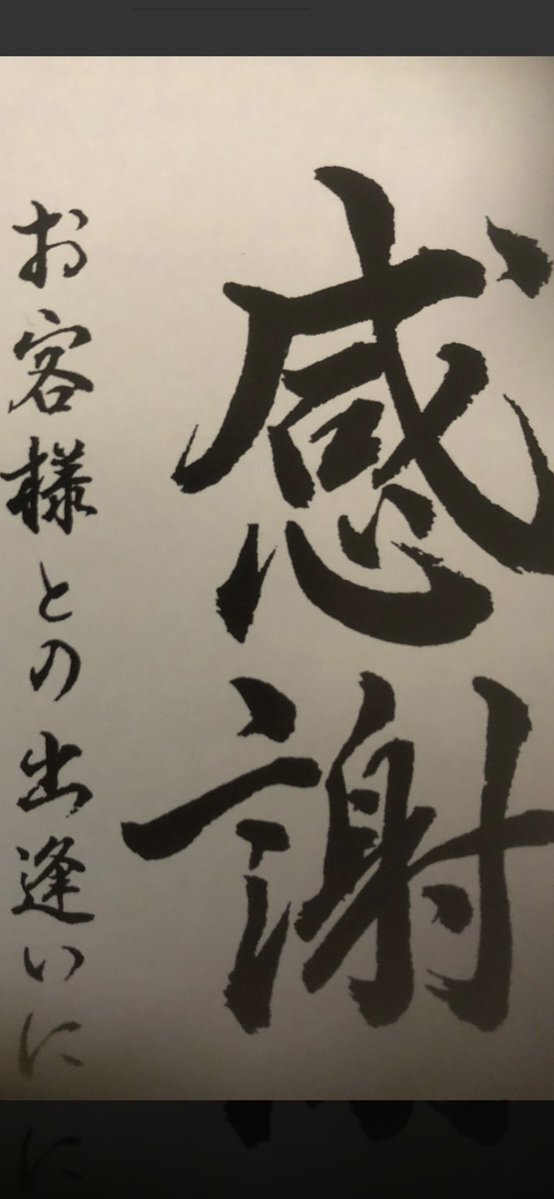 感謝
お客様との出逢いに